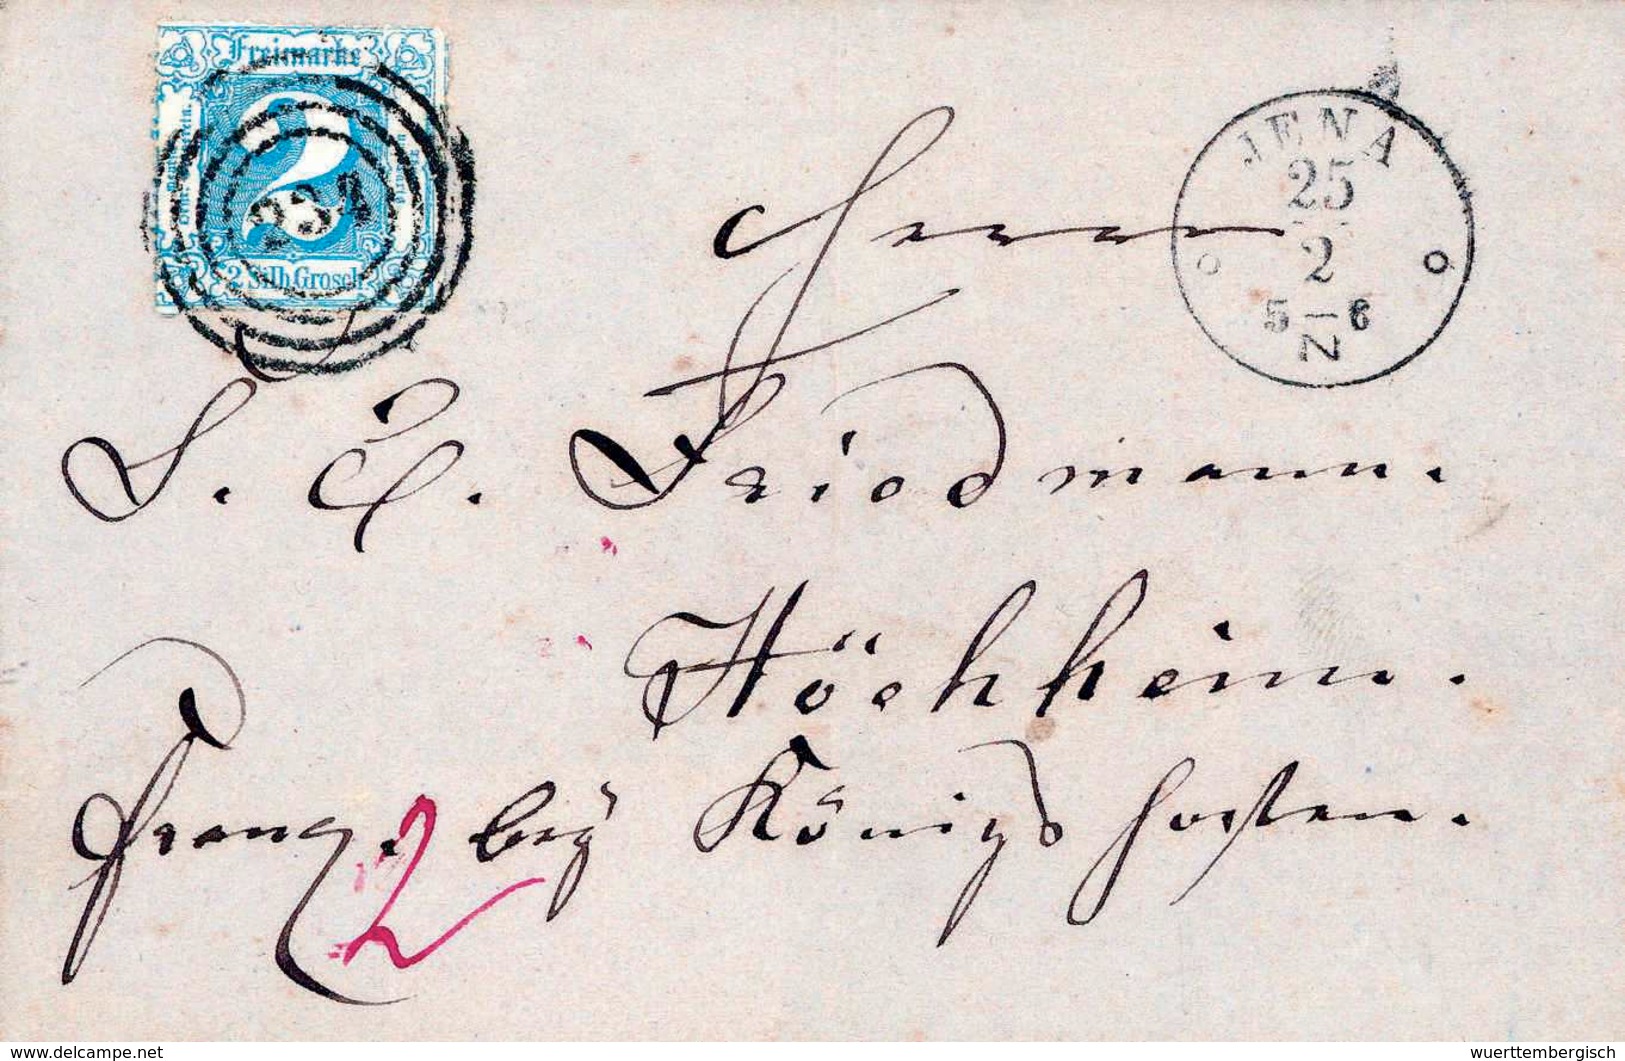 Freimarke
2 Silb. Grosch.
234
JENA
25
2
5-6
N
Herrn
S. E. Friedmann.
Höchheim.
franz. bey Königshofen.
2
delcampe.net
wuerttembergisch